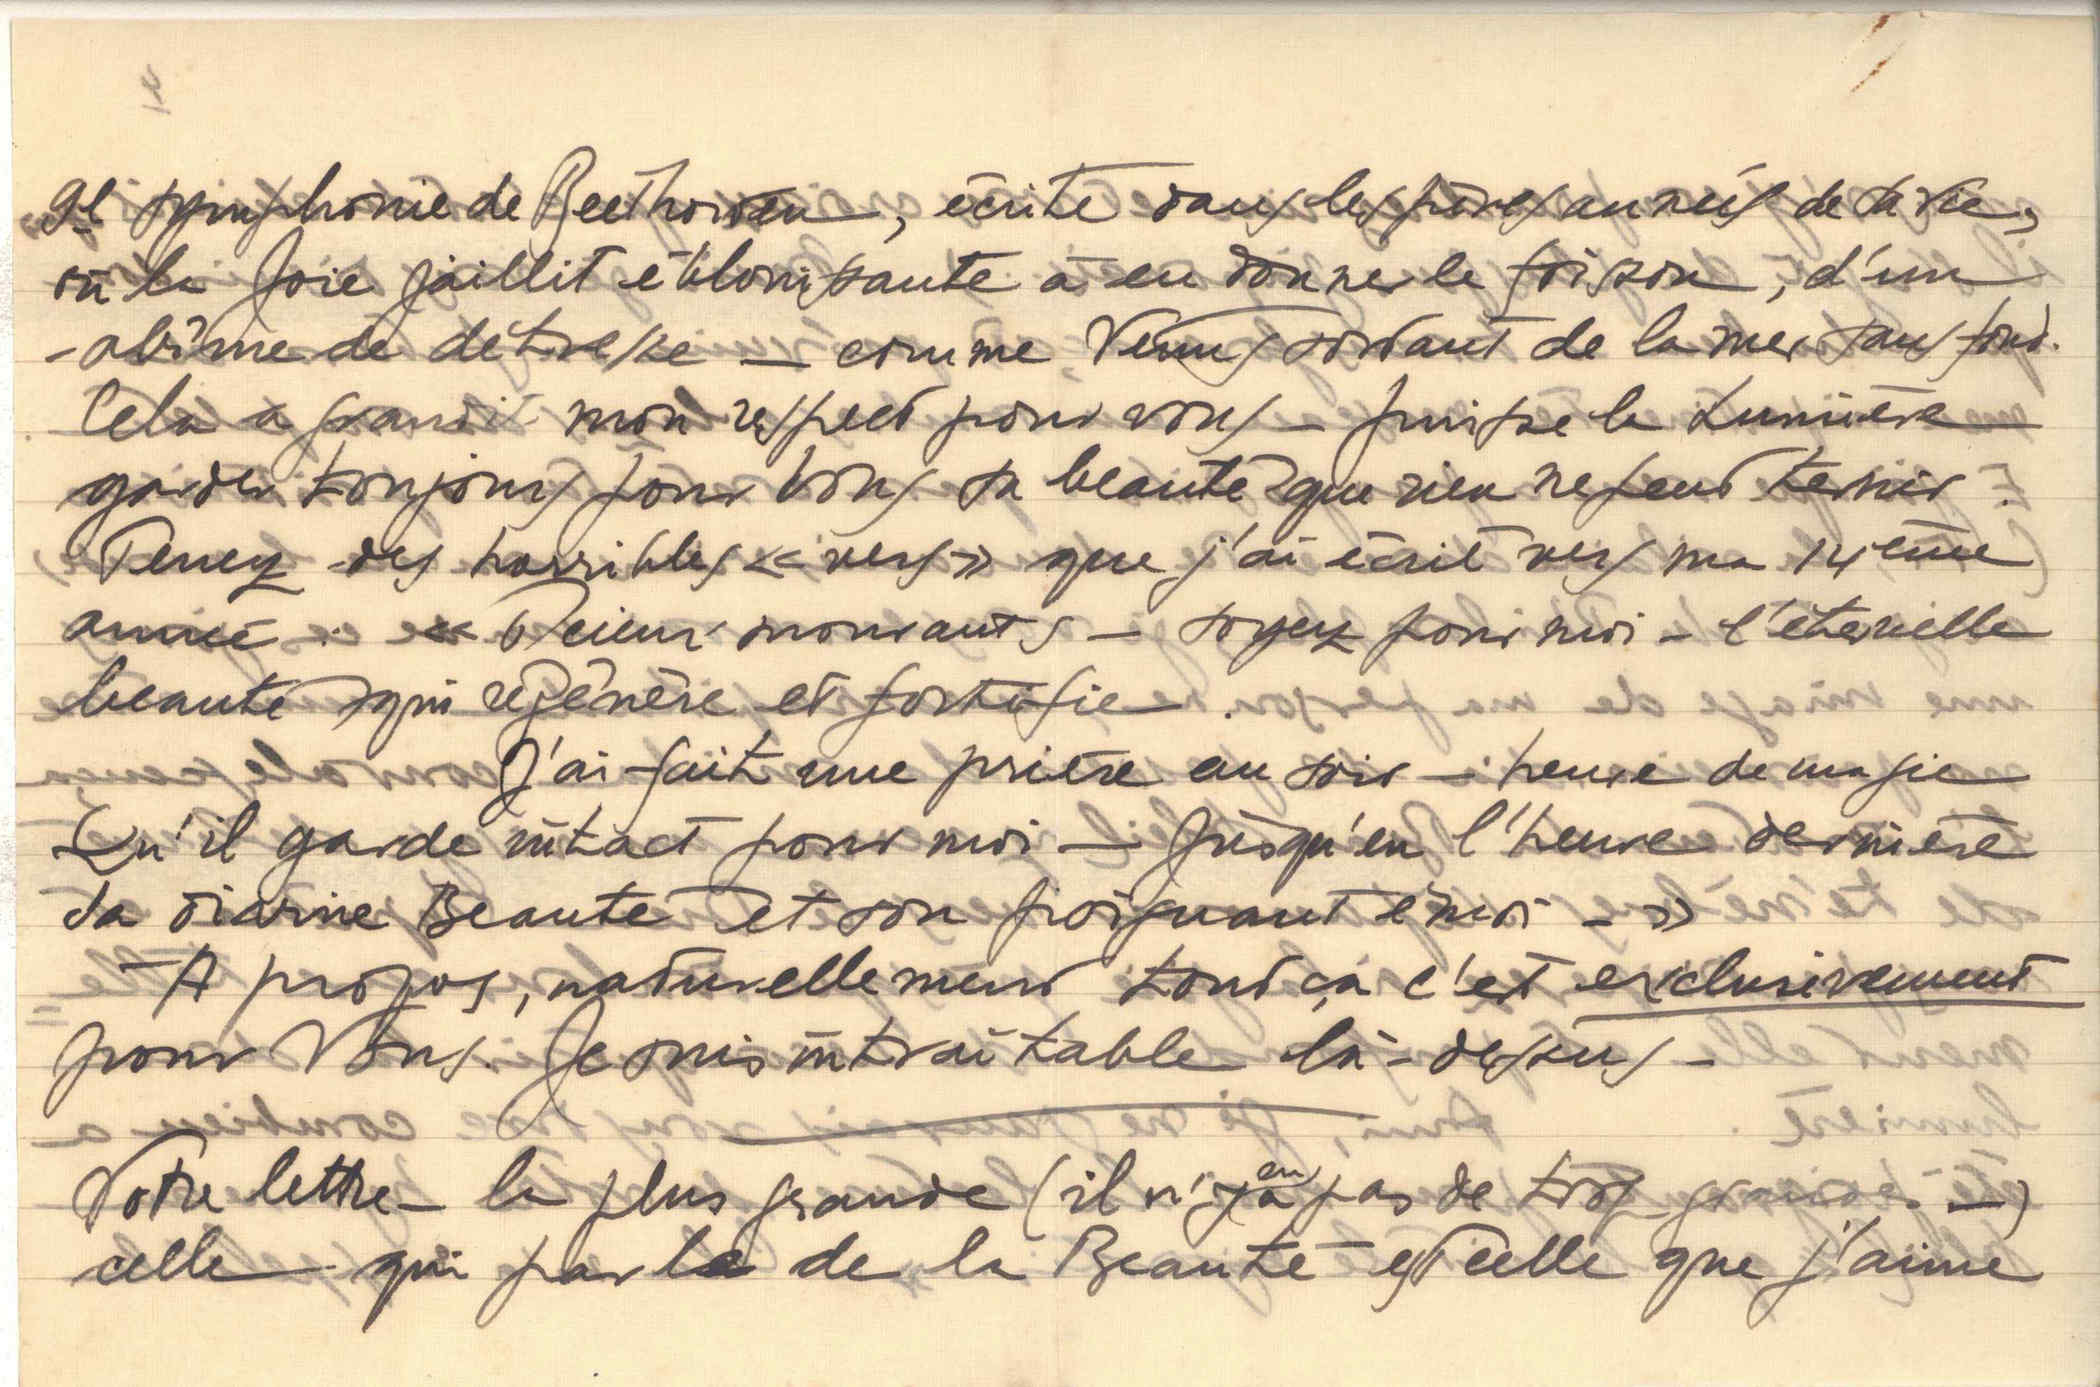 9e symphonie de Beethowen, écrite dans les pires années de sa vie,
où la Joie jaillit éblouissante à en donner le frisson, d'un
abîme de détresse – comme Vénus sortant de la mer sans fond.
Cela a grandi mon respect pour vous – puisse la Lumière
garder toujours pour vous sa beauté que rien ne peut ternir.
Tenez des horribles « vers » que j'ai écrit vers ma 14ème
année. « O cieux mourants – soyez pour moi – l'éternelle
beauté qui régénère et fortifie.
J'ai fait une prière au soir – heure de magie
Qu'il garde intact pour moi – jusqu'en l'heure dernière
Sa divine Beauté et son poignant émoi – »
– A propos, naturellement tout ça c'est exclusivement
pour Vous. Je suis intraitable là-dessus –
Votre lettre – la plus grande (il n'y en a pas de trop grandes –)
celle qui parle de la Beauté est celle que j'aime